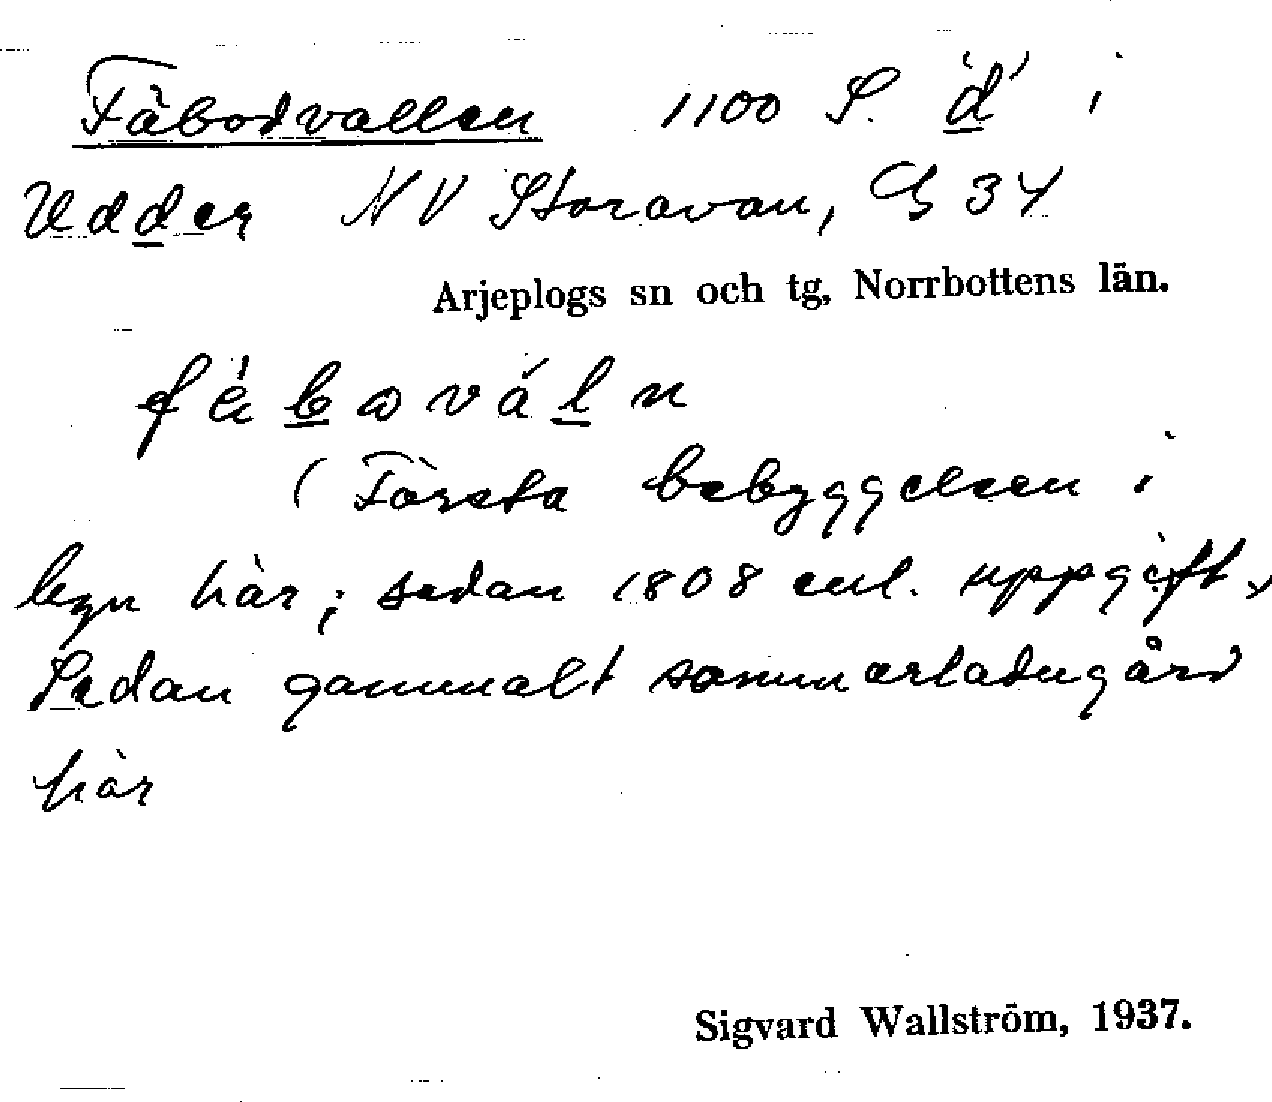 Fäbodvallen 1100 S. 'd' i
Udder NV Storavan, G 34
Arjeplogs sn och tg, Norrbottens län.
(Första bebyggelsen i
byn här; sedan 1808 enl. uppgift,
Sedan gammalt sommarladugård
här
Sigvard Wallström, 1937.